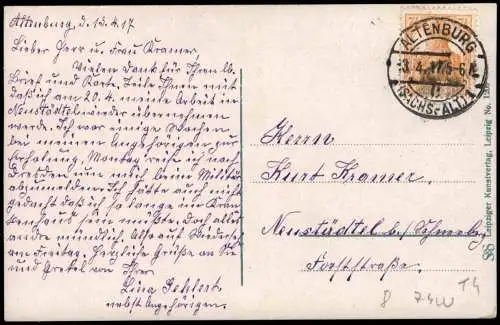 Altenburg, d. 13.4.17
Lieber Herr u. Frau Kramer.
Vielen Dank für Ihren lb.
Brief und Karte. Teile Ihnen mit
daß ich am 20.4. meine Arbeit in
Neustädtel wieder übernehmen
werde. Ich war einige Wochen
bei meinen Angehörigen zur
Erholung. Montag reise ich nach
Dresden um mich beim Militär
abzumelden. Ich hätte auch nicht
gedacht daß ich so lange im Kran
kenhaus sein müßte. Doch alles
andre mündlich. Also auf Wiedersehn
am Freitag. Herzliche Grüße an Sie
und Gretel von Ihrer
Lina
nebst Angehörigen.
ALTENBURG
13.4.17 5-6
(SACHS.-ALT.) 1
Herrn
Kurt Kramer.
Neustädtel b/ Schneebg
Forststraße.
Leipziger Kunstverlag, Leipzig No.
8